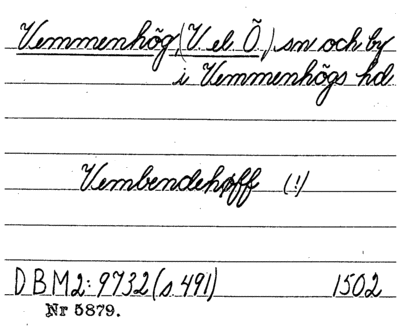 Vemmenhög (V. el. Ö.) sn och by
i Vemmenhögs hd
Vembendehøff (!)
DBM2: 9732 (s. 491) 1502
Nr 5879.